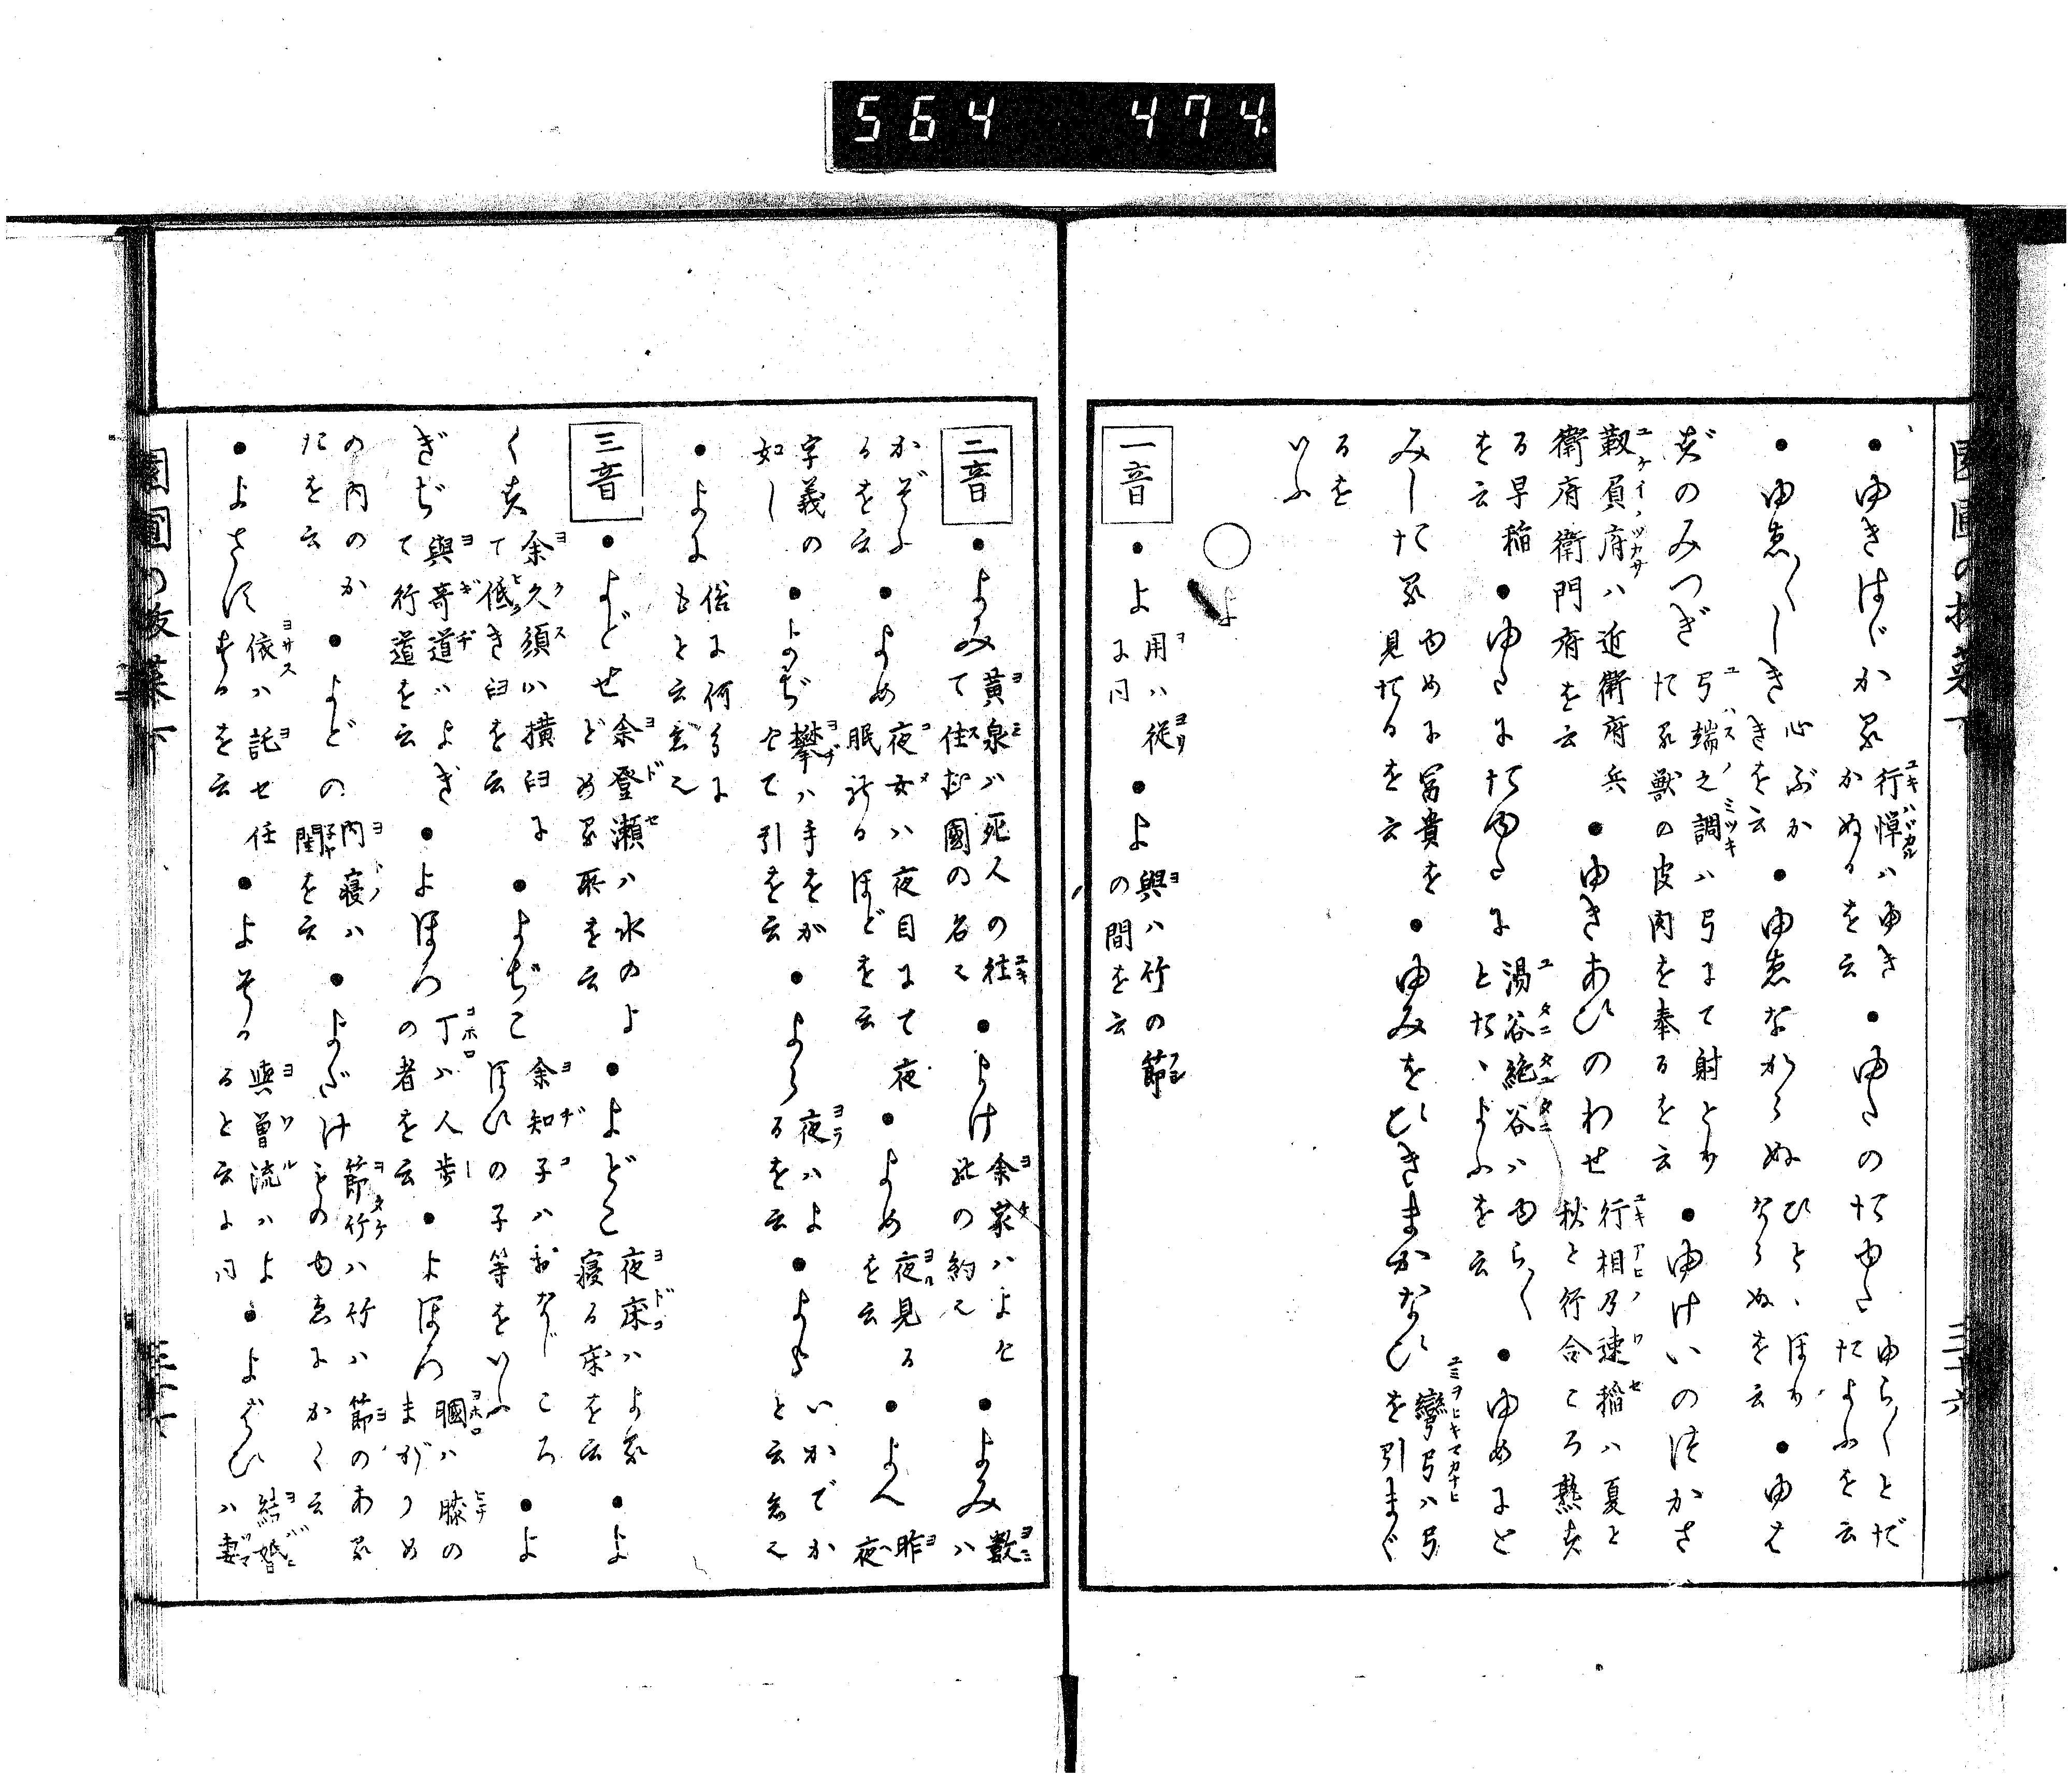 564 474
●ゆきはゞかる 行憚ハゆき かぬるを云 ●ゆたのたゆた ゆら〱とだ たよふを云
●ゆゑ〱しき 心ぶか きを云 ●ゆゑなからぬ ひとゝほり ならぬを云 ●ゆは
ずのみつぎ 弓端之調ハ弓にて射とり たる獣の皮肉を奉るを云 ●ゆけいのつかさ
靫負府ハ近衛府兵 衛府衛門府を云 ●ゆきあひのわせ 行相乃速稲ハ夏と 秋と行合ころ熟す
る早稲 を云 ●ゆたにたゆたに 湯谷絶谷ハゆら〱 とたゝよふを云 ●ゆめにと
みしたる ゆめに冨貴を 見たるを云 ●ゆみをひきまかなひ 彎弓ハ弓 を引まぐ
るを いふ
○よ
一音 ●よ 用ハ従 に同 ●よ 與ハ竹の節 の間を云
二音 ●よみ 黄泉ハ死人の往 て住む國の名也 ●よけ 余家ハよせ 此の約也 ●よみ 數ハ
かぞふ るを云 ●よめ 夜女ハ夜目にて夜 眠れるほどを云 ●よめ 夜見る を云 ●よべ 昨 夜
字義の 如し ●よぢ 攀ハ手をが せて引を云 ●よら 夜ハよ るを云 ●よも いかでか と云意也
●よに 俗に何分に もと云意也
三音 ●よどせ 余登瀬ハ水のよ どめる所を云 ●よどこ 夜床ハよる 寝る床を云 ●よ
くす 余久須ハ横臼に て低き臼を云 ●よぢこ 余知子ハおなじころ ほひの子等をいふ ●よ
ぎぢ 與奇道ハよぎ て行道を云 ●よほろ 丁ハ人歩 の者を云 ●よほろ 膕ハ膝の まがりめ
の内のか たを云 ●よどの 内寝ハ 閨を云 ●よだけ 節竹ハ竹ハ節のある ものゆゑにかく云
●よさす 依ハ託せ任 するを云 ●よそる 與曽流ハよ ると云に同 ●よばひ 結婚 ハ妻